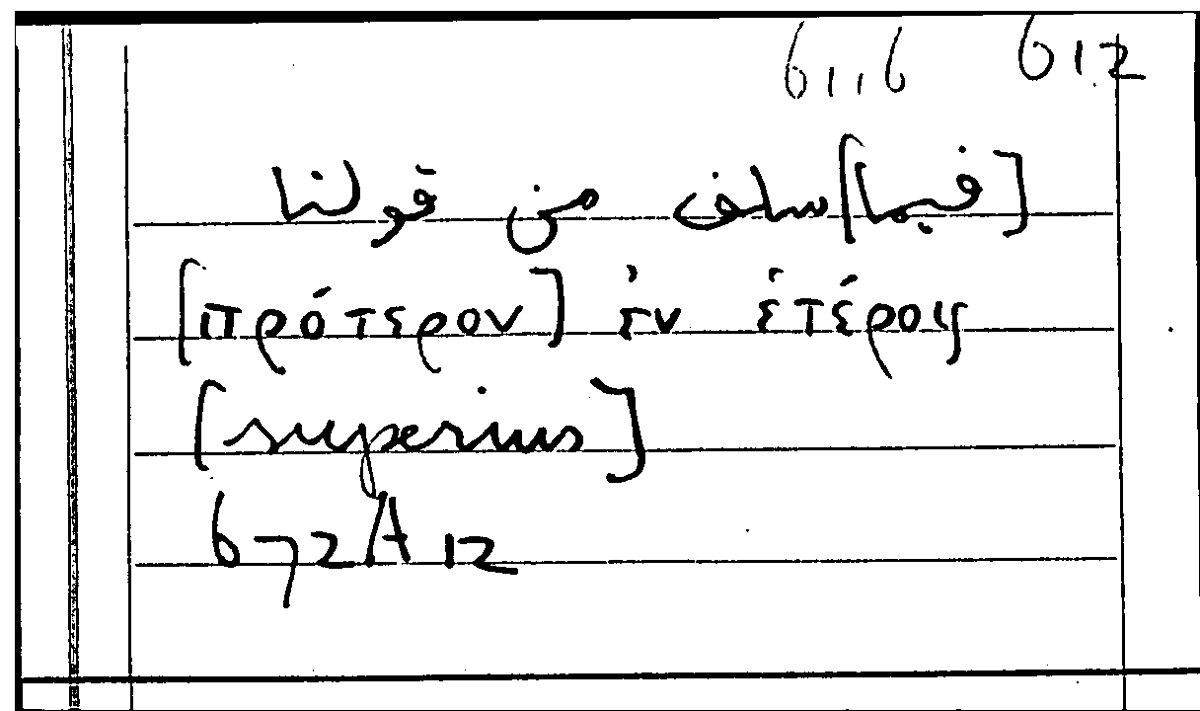 61,6 612
[فيما] سلف من قولنا
[πρότερον] ἐν ἑτέροις
[superius]
672A12